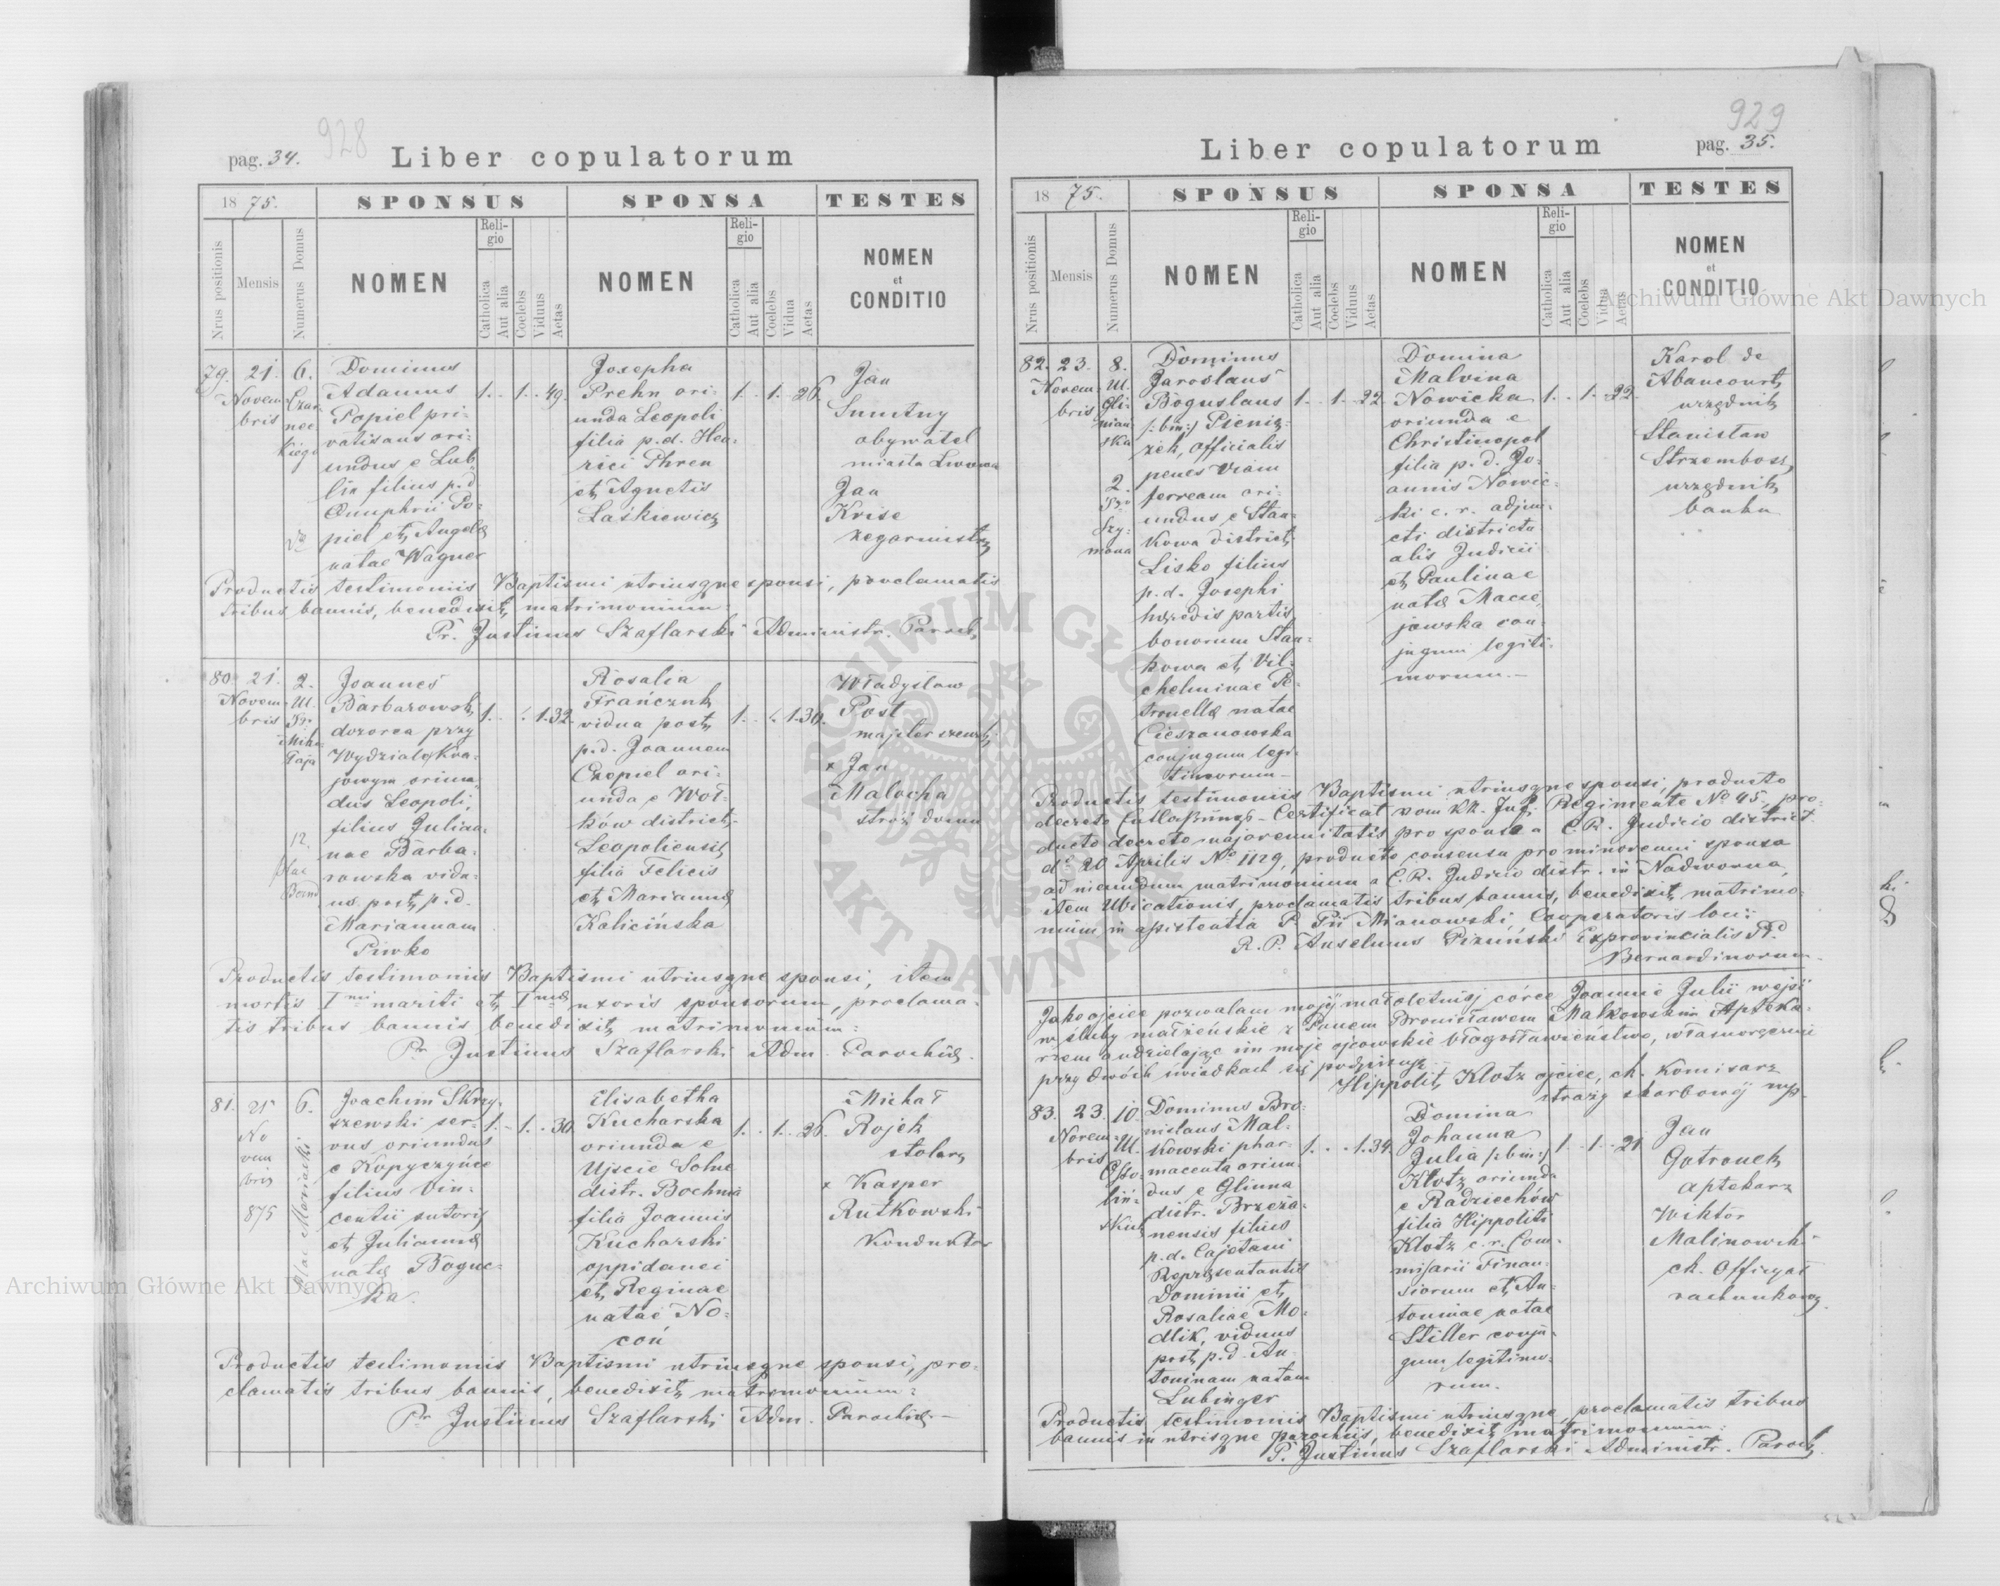 928
pag. 34.
Liber copulatorum
1875.
SPONSUS
SPONSA
TESTES
Nrus positionis
Mensis
Numerus Domus
NOMEN
Religio
Catholica
Aut alia
Coelebs
Viduus
Aetas
NOMEN
Religio
Catholica
Aut alia
Coelebs
Vidua
Aetas
NOMEN
et
CONDITIO
79. 21. Novembris
6. Czarneckiego
Dominus
Adamus
Popiel pri-
vatisans ori-
undus e Lub-
lin filius p.d
Onuphrii Po-
piel et Angelae
natae Wagner
1. . 1. . 49.
Josepha
Prehn ori-
unda Leopoli
filia p.d. Hen-
rici Phren
et Agnetis
Laskiewicz
1. . 1. 26.
Jan
Smutny
obywatel
miasta Lwowa
Jan
Krise
zegarmistrz
Productis testimoniis Baptismi utriusque sponsi, proclamatis
tribus bannis, benedixit matrimonium:
Pr. Justinus Szaflarski Administr. Paroch,
80. 21. Novembris
2.
Ul.
Joannes
Barbarowski
dozorca przy
Wydziale Kra-
jowym oriun-
dus Leopoli,
filius Julian-
nae Barba-
rowska vidu-
us post p.d.
Mariannam
Piwko
1. . . 1. 32.
Rosalia
Frańczuk
vidua post
p.d. Joannem
Czopiel ori-
unda e Woł-
ków district,
Leopoliensis,
filia Felicis
et Mariannae
Kalicińska
1. . . 1. 30.
Władysław
Post
majster szewski
x Jan
Malocha
stróż domu
12.
Plac
Bernd
Productis testimoniis Baptismi utriusque sponsi, item
mortis Imi mariti et Imae uxoris sponsorum, proclama-
tis tribus bannis benedixit matrimonium:
Pr Justinus Szaflarski Adm. Parochiae.
81. 21
No
vem
bris
875
6.
Plac Mariacki
Joachim Skrzy-
szewski ser-
vus oriundus
e Kopyczyńce
filius Vin-
centii sutoris
et Juliannae
natae Boguc-
ka.
1. . 1. . 30.
Elisabetha
Kucharska
oriunda e
Ujscie Solne
distr. Bochnia
filia Joannis
Kucharski
oppidanei
et Reginae
natae No-
coń
1. . 1. . 26.
Michał
Rojek
stolarz
x Kasper
Rutkowski
Konduktor
Productis testimoniis Baptismi utriusque sponsi, pro-
clamatis tribus bannis, benedixit matrimonium:
Pr Justinus Szaflarski Adm. Parochiae.
929
Liber copulatorum
pag. 35.
1875.
SPONSUS
SPONSA
TESTES
Nrus positionis
Mensis
Numerus Domus
NOMEN
Religio
Catholica
Aut alia
Coelebs
Viduus
Aetas
NOMEN
Religio
Catholica
Aut alia
Coelebs
Vidua
Aetas
NOMEN
et
CONDITIO
82. 23. Novembris
8.
Ul.
Gli-
nian-
ska
2.
Szy-
mona
Dominus
Jaroslaus
Boguslaus
(: bin:) Pieniz-
zek, officialis
penes Viam
ferream ori-
undus e Stan-
kowa district,
Lisko filius
p.d. Josephi
haeredis partis
bonorum Stan-
kowa et Vil-
chelminae Pe-
tronellae natae
Cieszanowska
conjugum legi-
timorum
1. . 1. . 22
Domina
Malvina
Nowicka
oriunda e
Christinopol
filia p.d. Jo-
annis Nowic-
ki c.r. adjun-
cti districtu
alis Judicii
et Paulinae
natae Macie-
jowska con-
jugum legiti-
morum.
1. . 1. . 22.
Karol de
Abancourt
urzędnik
Stanisław
Strzembosz,
urzędnik
banku
Productis testimoniis Baptismi utriusque sponsi, producto
decreto Entlaßungs-Certificat vom KK. Inf. Regimente No 45, pro-
ducto decreto majorennitatis pro sponso a C.R. Judicio district
do 20 Aprilis No 1129, producto consensu pro minorenni sponsa
ad ineundum matrimonium a C.R. Judicio distr. in Nadworna,
item Ubicationis, proclamatis tribus bannis, benedixit matrimo-
nium in assistentia P. Pii Mianowski, Cooperatoris loci:
R. P. Anselmus Pizuński Exprovincialis PP.
Bernardinorum.
Jako ojciec pozwalam mojej małoletniej córce Joannie Julii wejść
w śluby małżeńskie z Panem Bronisławem Malkowskim Apteka-
rzem a udzielając im moje ojcowskie błogosławieństwo, własnoręcznie
przy dwóch świadkach się podpisuję
Hippolit Klotz ojciec, ck. Komisarz
straży skarbowej mp.
83. 23. Novembris
10
Ul.
Osso-
liń-
skich
Dominus Bro-
nislaus Mal-
kowski phar-
maceuta oriun-
dus e Glinna
distr. Brzeża-
nensis filius
p.d. Cajetani
Repraesentantis
Dominii et
Rosaliae Mo-
dlik, viduus
post p.d. An-
toninam natam
Lubinger
1. . . 1. 34.
Domina
Johanna
Julia (: bin:)
Klotz oriunda
e Radziechów
filia Hippoliti
Klotz c.r. Com-
misarii Finan-
siorum et An-
toninae natae
Stiller conju-
gum legitimo-
rum.
1. . 1. . 21.
Jan
Gatronek
aptekarz
Wiktor
Malinowski
ck. Officyał
rachunkowy
Productis testimoniis Baptismi utriusque, proclamatis tribus
bannis in utrisque parochiis, benedixit matrimonium:
P. Justinus Szaflarski Administr. Paroch,
Archiwum Główne Akt Dawnych
Archiwum Główne Akt Dawnych
ARCHIWUM GŁÓWNE AKT DAWNYCH